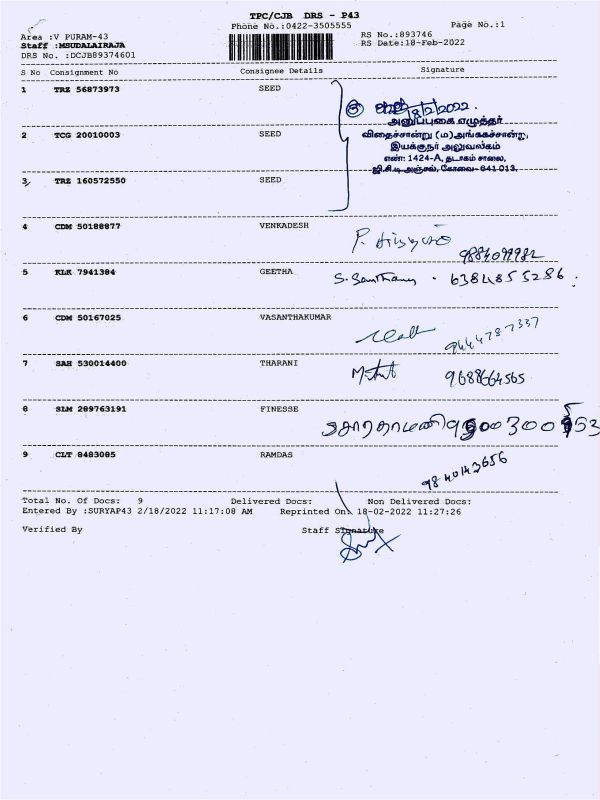 TPC/CJB DRS - P43
Phone No.:0422-3505555 Page No.:1
Area :V PURAM-43 RS No.:893746
Staff :MSUDALAIRAJA RS Date:18-Feb-2022
DRS No. :DCJB89374601
S No Consignment No Consignee Details Signature
1 TRZ 56873973 SEED
18/2/2022.
அனுப்புகை எழுத்தர்
2 TCG 20010003 SEED விதைச்சான்று (ம) அங்ககச்சான்று,
இயக்குநர் அலுவலகம்
எண்: 1424-A, தடாகம் சாலை,
ஜி.சி.டி அஞ்சல், கோவை- 641 013.
3 TRZ 160572550 SEED
4 CDM 50188877 VENKADESH
5 KLK 7941384 GEETHA 6384855286.
6 CDM 50167025 VASANTHAKUMAR 9444787337
7 SAH 530014400 THARANI 9688664565
8 SLM 289763191 FINESSE
9 CLT 8483085 RAMDAS 9840142656
Total No. Of Docs: 9 Delivered Docs: Non Delivered Docs:
Entered By :SURYAP43 2/18/2022 11:17:08 AM Reprinted On: 18-02-2022 11:27:26
Verified By Staff Signature